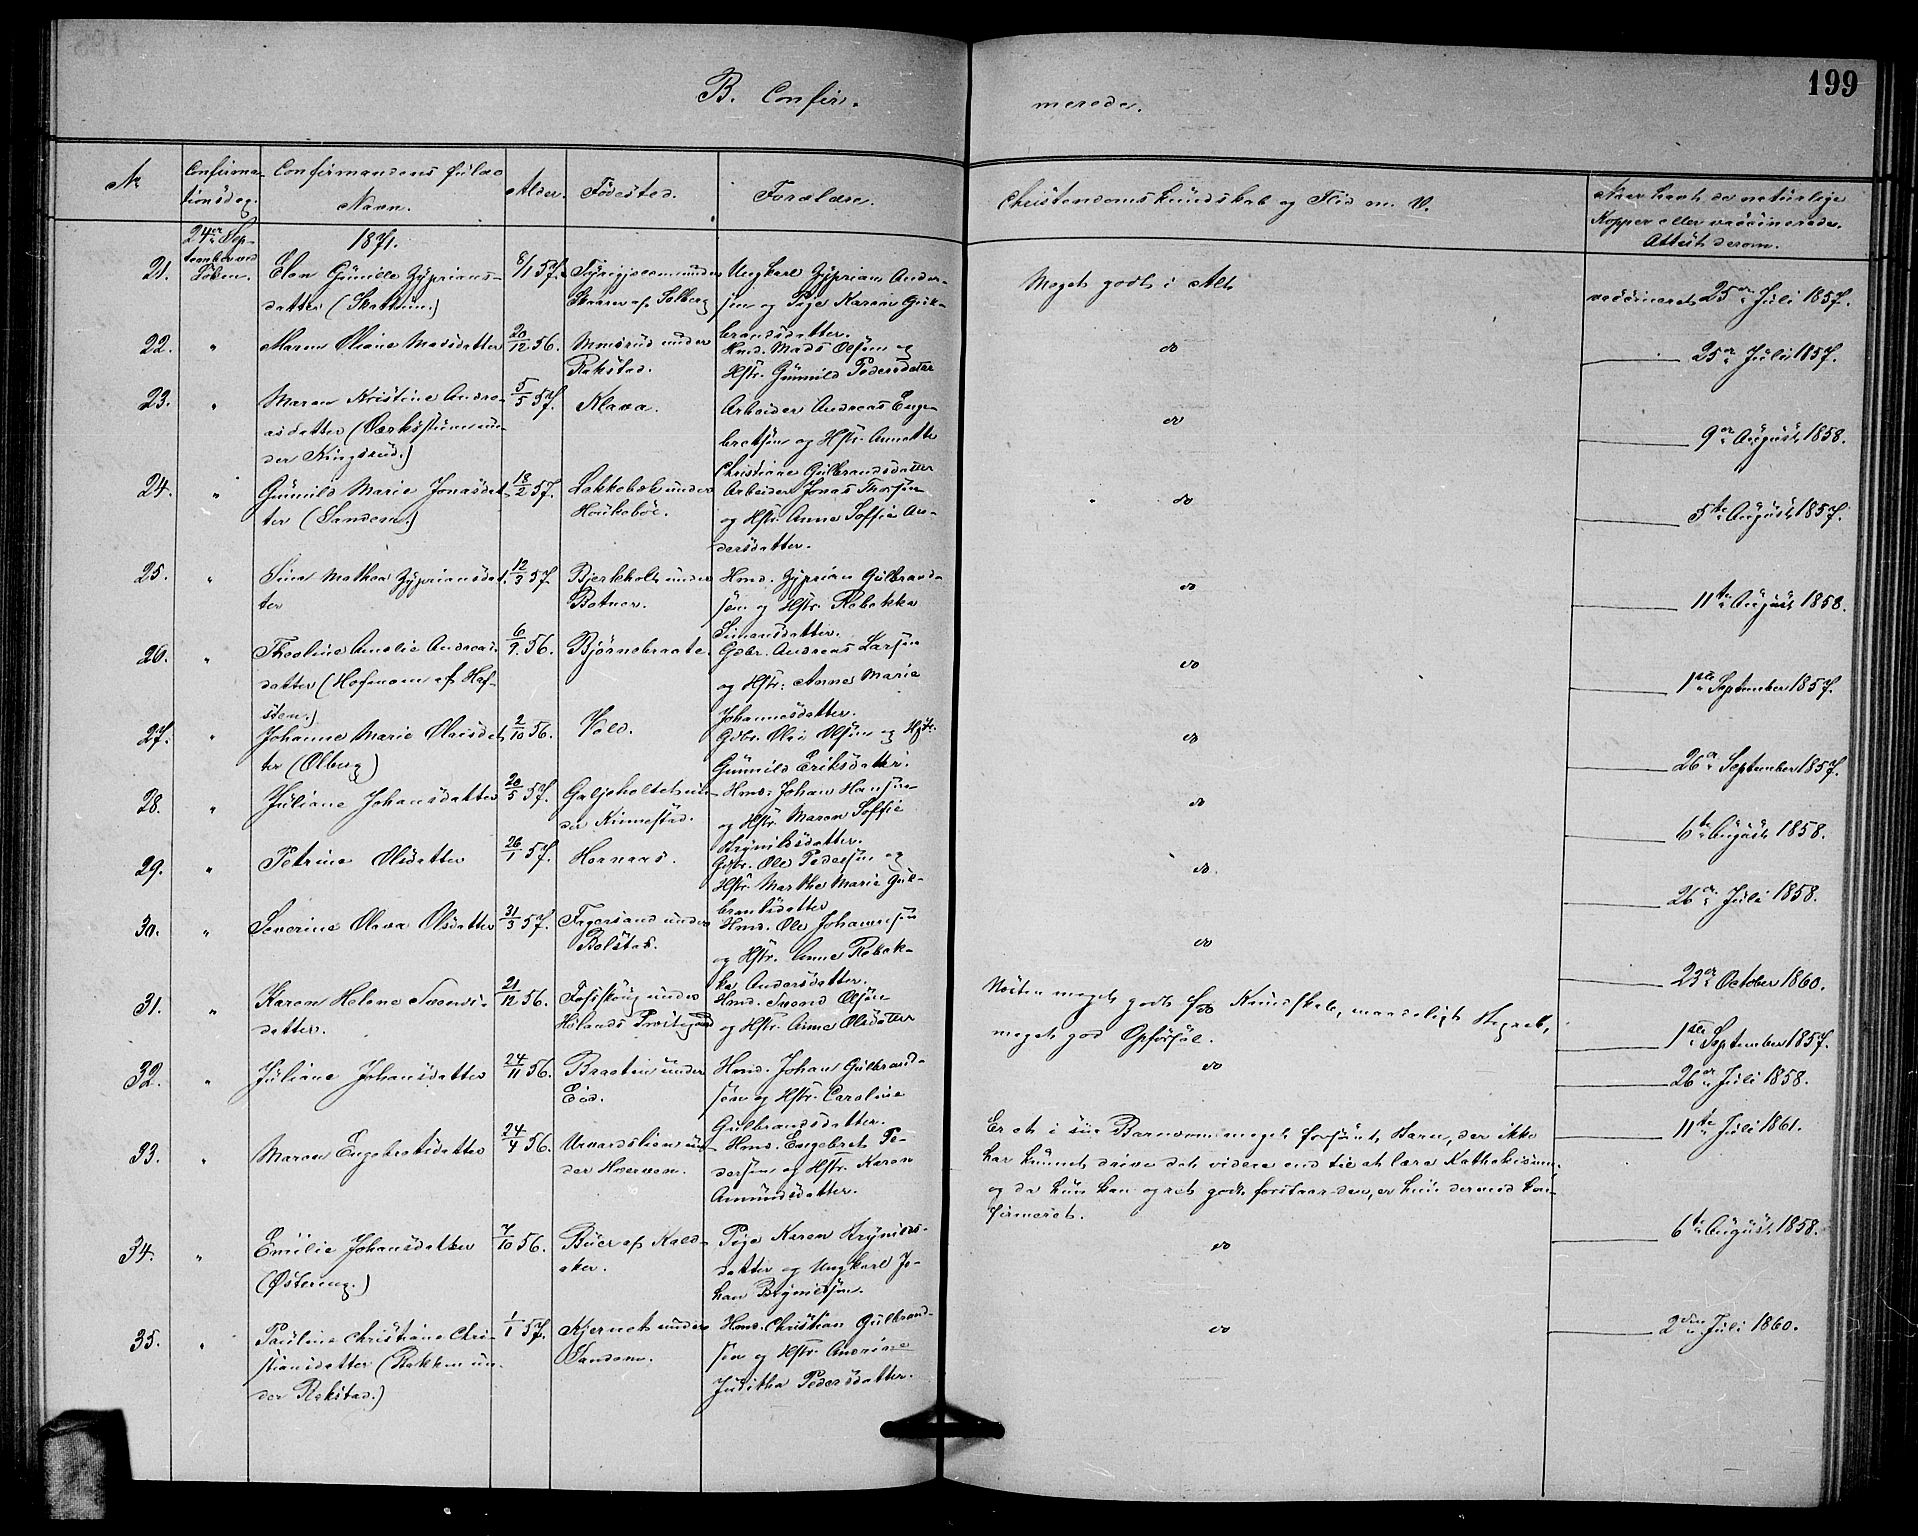 199
B. Confir-
merede.
No
Confirma-
tionsdag.
Confirmandens fulde
Navn.
Alder.
Fødested.
Forældre.
Christendoms Kundskab og Flid m. V.
Naar havt de naturlige
Kopper eller vaccinerede.
Attest derom.
24de Sep-
tember ved
Løken.
1871.
21. Elen Gunilde Zyprians- 8/1 57.
datter (Skattum.) Skaaren af Solberg
Ungkarl Zyprian Ander-
sen og Pige Karen Gul-
brandsdatter.
Meget godt i Alt
vaccineret 25de Juli 1857.
22. " Maren Oliane Madsdatter 20/12 56. Momsrud under
Rakstad.
Hmd. Mads Olsen og
Hstr. Gunnild Pedersdatter
do
25de Juli 1857.
23. " Maren Kristine Andre- 5/5 57. Klava.
asdatter (Værksstuen un-
der Kingsrud.)
Arbeider Andreas Enge-
bretsen og Hstr. Annette
Christiane Gulbrandsdatter
do
9de August 1858.
24. " Gunnild Marie Jonasdat- 18/2 57. Lakkebæk under
ter (Sandem.)
Arbeider Jonas Thorsen
og Hstr. Anne Soffie An-
dersdatter.
do
5te August 1857.
25. " Lina Mathea Zypriansdat- 12/3 57. Bjerkholt under
ter Botner.
Hmd. Zyprian Gulbrand-
sen og Hstr. Rebekka
Simensdatter.
do
11te August 1858.
26. " Theoline Amalie Andreas- 6/9 56. Bjørnebraate.
datter (Hofmoen af Haf-
sten.)
Gdbr. Andreas Larsen
og Hstr. Anne Marie
Johannesdatter.
do
1ste September 1857.
27. " Johanne Marie Olausdat- 2/10 56. Vold.
ter (Olberg)
Gdbr. Ole Olsen og Hstr.
Gunnild Eriksdatter.
do
26de September 1857.
28. " Juliane Johansdatter 20/5 57. Galjeholtet un-
der Kinnestad.
Hmd. Johan Hansen
og Hstr. Maren Soffie
Brynildsdatter.
do
6te August 1858.
29. " Petrine Olsdatter 26/1 57. Hornaas.
Gdbr. Ole Pedersen og
Hstr. Marthe Marie Gul-
brandsdatter
do.
26de Juli 1858.
30. " Severine Olava Olsdatter 31/3 57. Fagersand under
Bolstad.
Hmd. Ole Johannsen
og Hstr. Anne Rebek-
ka Andersdatter.
do
23de October 1860.
31. " Karen Helene Svends- 21/12 56. Fosskoug under
datter. Hølands Præstegaard
Hmd. Svend Olsen
og Hstr. Anne Olsdatter
Næsten meget godt for Kundskab, maadeligt Begreb,
meget god Opførsel.
do
1ste September 1857.
32. " Juliane Johansdatter 24/11 56. Braaten under
Eid.
Hmd. Johan Gulbrand-
sen og Hstr. Caroline
Gulbrandsdatter.
do
26de Juli 1858.
33. " Maren Engebretsdatter 24/4 56. Urvardslien un-
der Hoerven.
Hmd. Engebret Pe-
dersen og Hstr. Karen
Amundsdatter.
Er et i sin Barndom meget forsømt Barn, der ikke
har kunnet drive det videre end til at lære Kathekismus
og da hun kan og ret godt forstaar den, er hun dermed kon-
firmeret.
11te Juli 1861.
34. " Emilie Johansdatter 7/10 56. Buer af Kald-
(Østereng.) aker.
Pige Karen Brynilds-
datter og Ungkarl Jo-
han Brynildsen.
do
6te August 1858.
35. " Pauline Christiane Chri- 1/1 57. Kjernet under
stiansdatter (Bakken un- Sandem.
der Rakstad.)
Hmd. Christian Gulbrand-
sen og Hstr. Andrine
Juditha Pedersdatter.
do
2den Juli 1860.